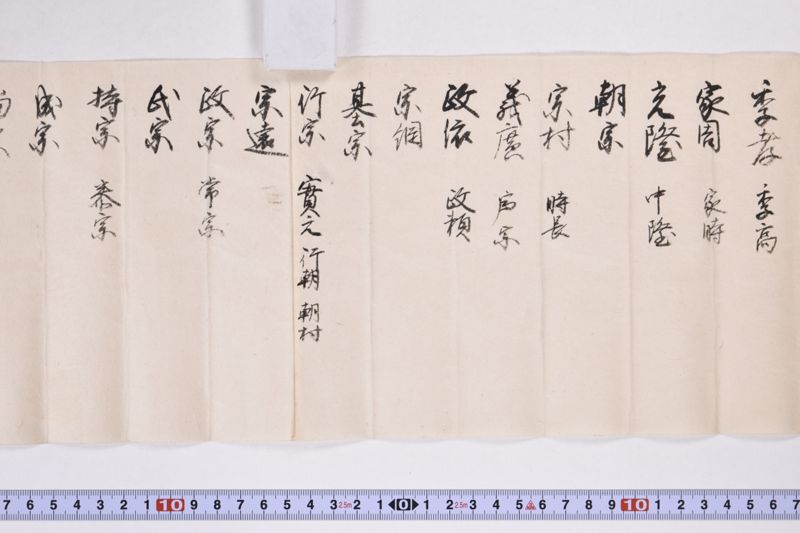 季孝 季高
家周 家時
元隆 中隆
朝宗
宗村 時長
義廣 為宗
政依 政頼
宗綱
基宗
行宗 實元 行朝 朝村
宗遠
政宗 常宗
氏宗
持宗 泰宗
成宗
7 6 5 4 3 2 1 10 9 8 7 6 5 4 3 2.5m 2 1 0 1 2 2.5m 3 4 5 6 7 8 9 10 1 2 3 4 5 6 7